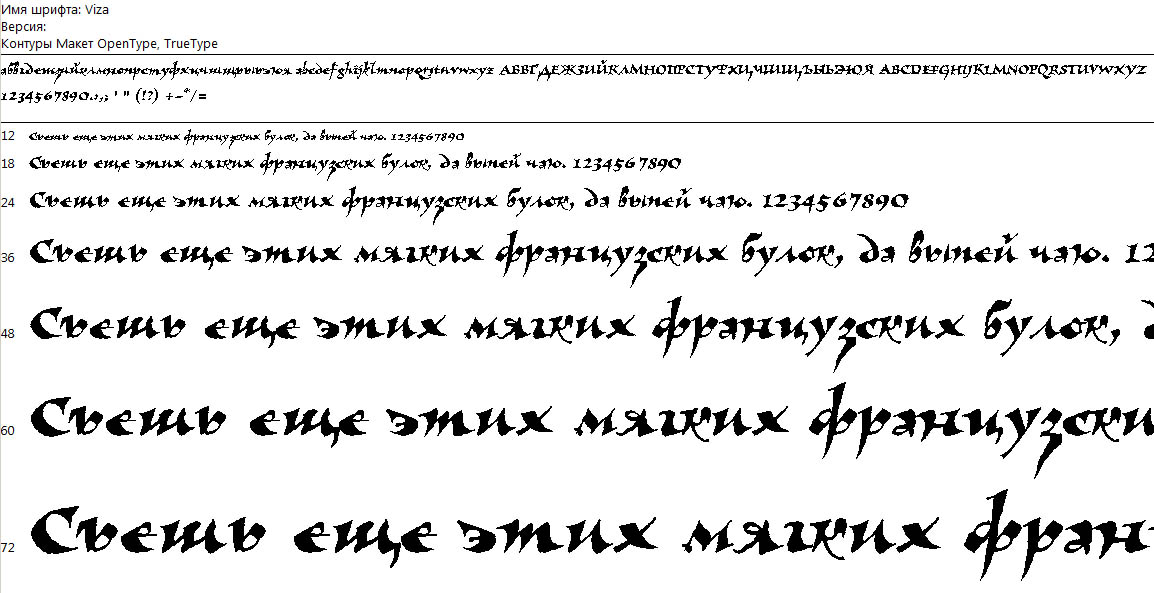 Имя шрифта: Viza
Версия:
Контуры Макет OpenType, TrueType
абвгдежзийклмнопрстуфхцчшщьыъэюя abcdefghijklmnopqrstuvwxyz АБВГДЕЖЗИЙКЛМНОПРСТУФХЦЧШЩЪЫЬЭЮЯ ABCDEFGHIJKLMNOPQRSTUVWXYZ
1234567890.:,; ' " (!?) +-*/=
12 Съешь еще этих мягких французских булок, да выпей чаю. 1234567890
18 Съешь еще этих мягких французских булок, да выпей чаю. 1234567890
24 Съешь еще этих мягких французских булок, да выпей чаю. 1234567890
36 Съешь еще этих мягких французских булок, да выпей чаю. 12
48 Съешь еще этих мягких французских булок,
60 Съешь еще этих мягких французски
72 Съешь еще этих мягких фран